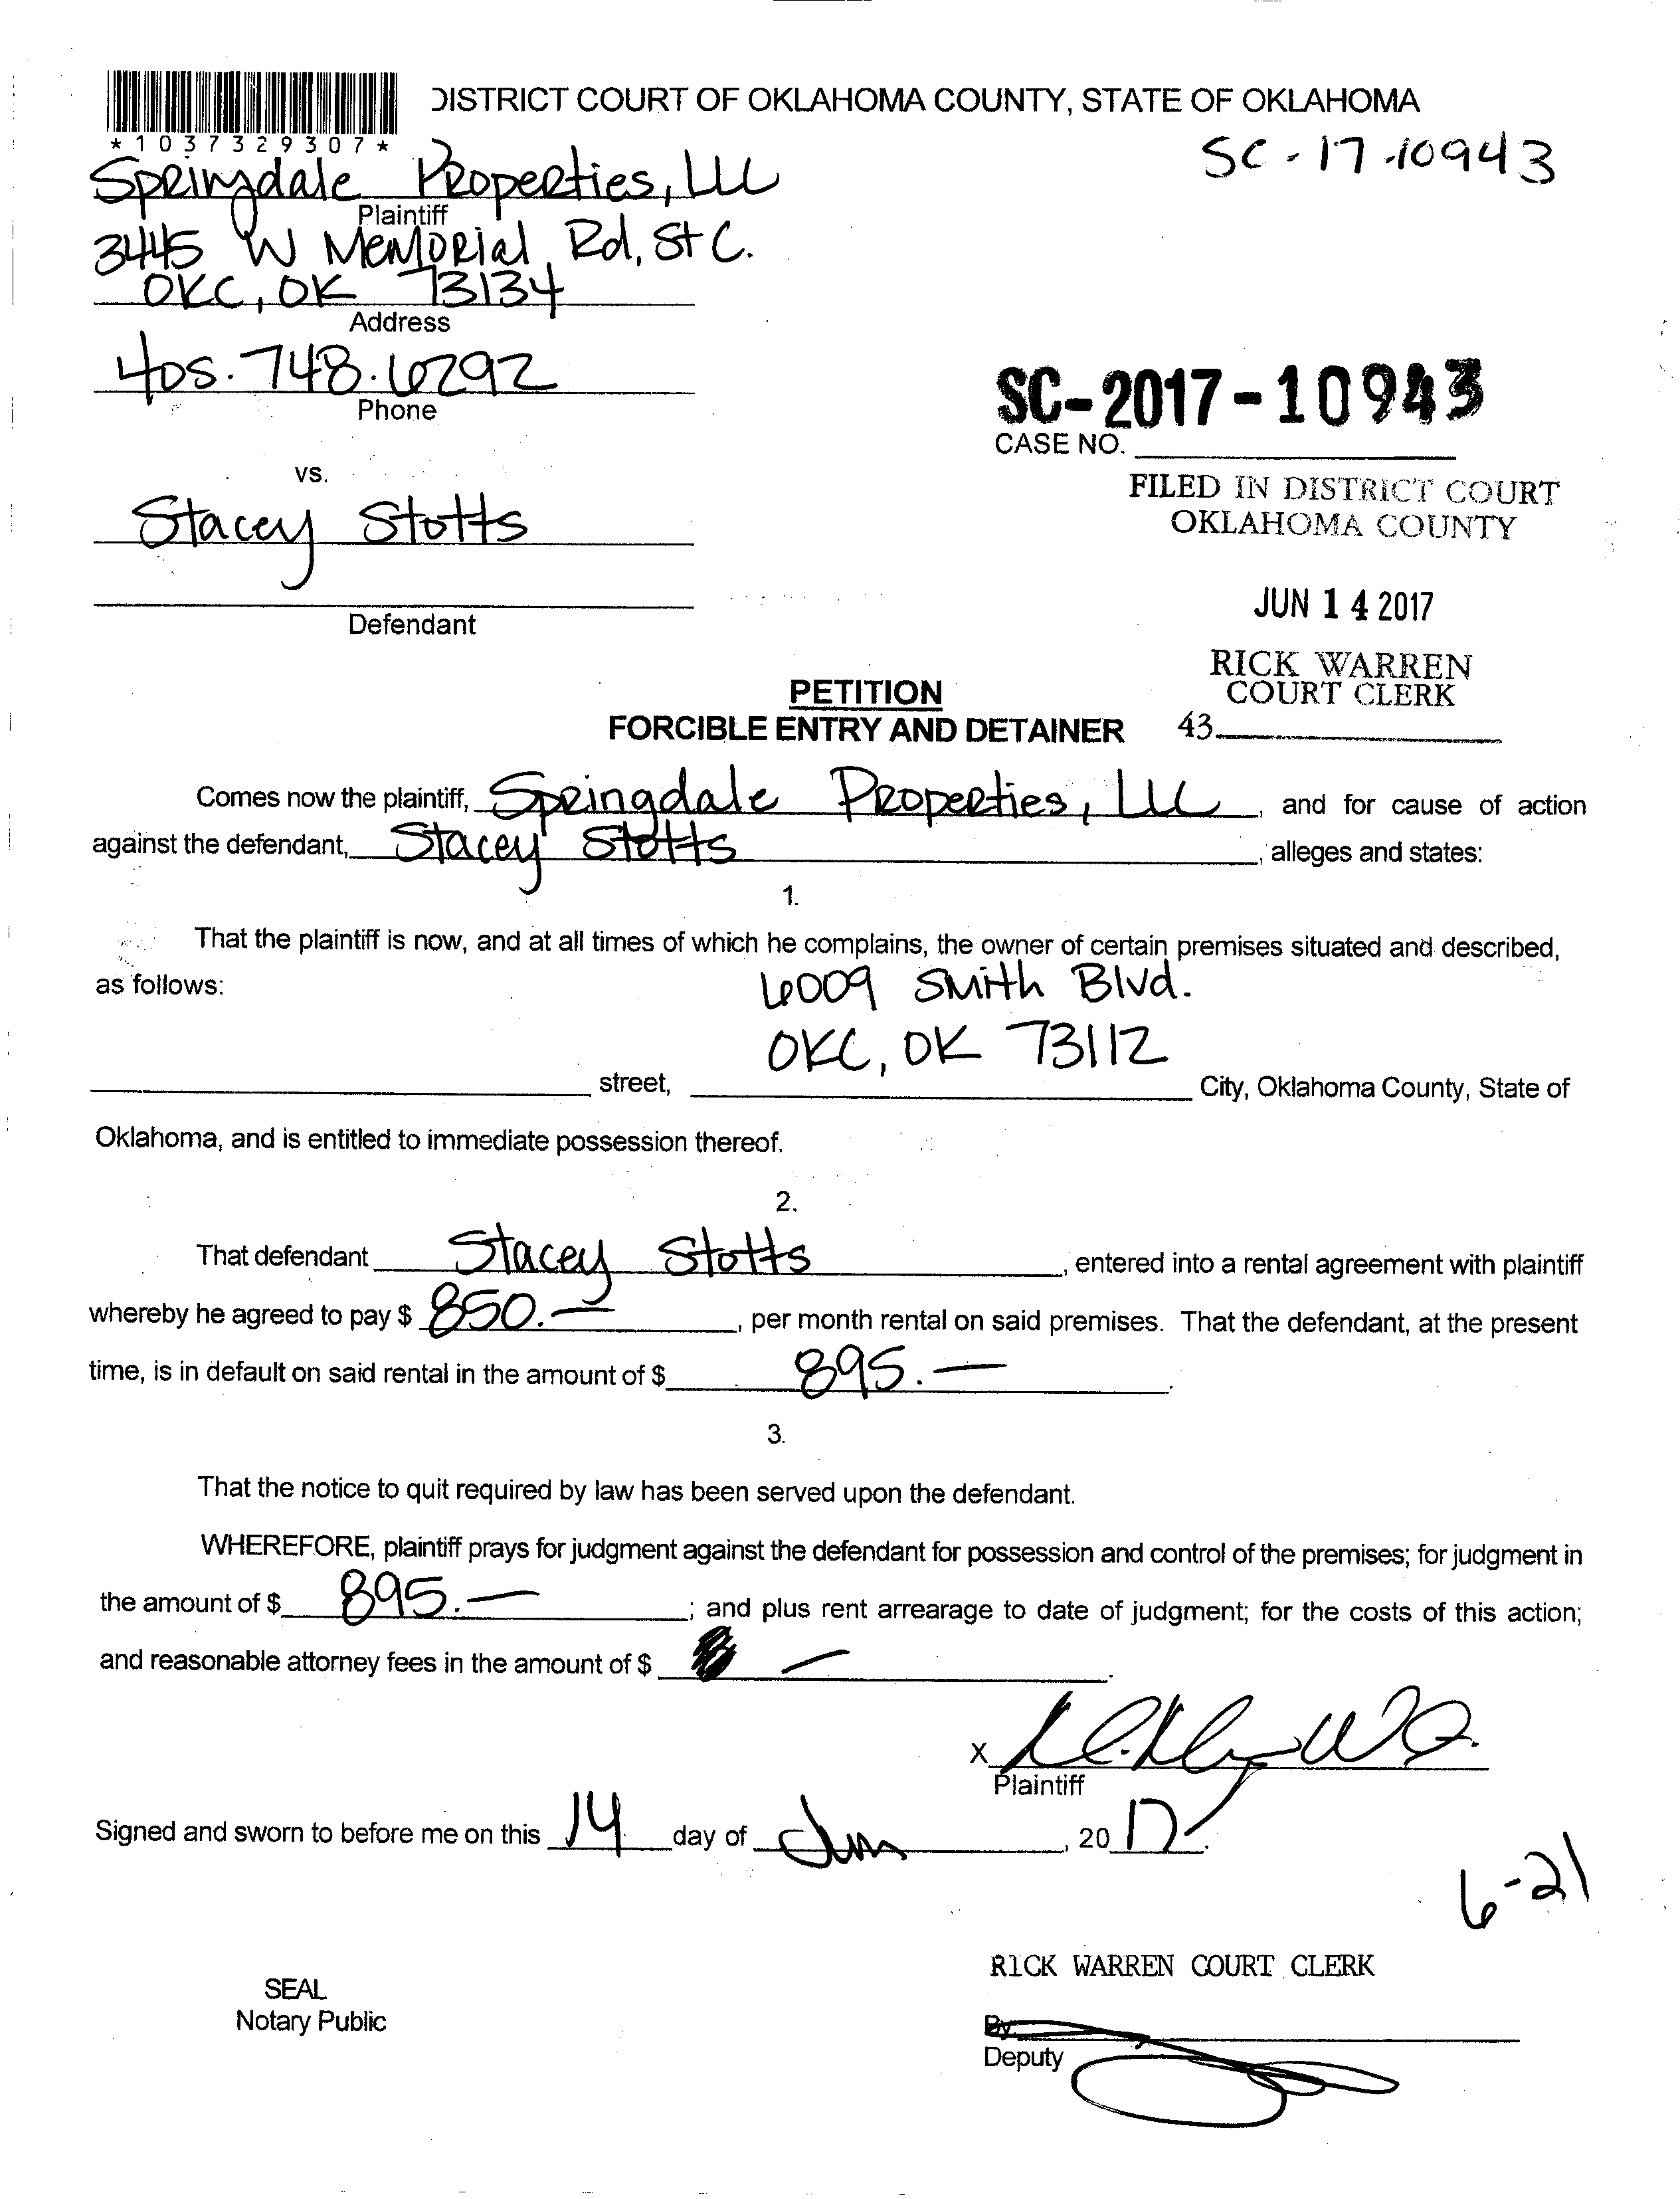 DISTRICT COURT OF OKLAHOMA COUNTY, STATE OF OKLAHOMA
*1037329307*
SC-17-10943
Springdale Properties, LLC
Plaintiff
3445 W Memorial Rd, St C.
OKC, OK 73134
Address
405.748.6292
Phone
SC-2017-10943
CASE NO.
vs.
FILED IN DISTRICT COURT
OKLAHOMA COUNTY
Stacey Stotts
JUN 14 2017
Defendant
RICK WARREN
COURT CLERK
43
PETITION
FORCIBLE ENTRY AND DETAINER
Comes now the plaintiff, Springdale Properties, LLC, and for cause of action
against the defendant, Stacey Stotts, alleges and states:
1.
That the plaintiff is now, and at all times of which he complains, the owner of certain premises situated and described,
as follows: 6009 Smith Blvd.
OKC, OK 73112
street, City, Oklahoma County, State of
Oklahoma, and is entitled to immediate possession thereof.
2.
That defendant Stacey Stotts, entered into a rental agreement with plaintiff
whereby he agreed to pay $ 850.—, per month rental on said premises. That the defendant, at the present
time, is in default on said rental in the amount of $ 895.—.
3.
That the notice to quit required by law has been served upon the defendant.
WHEREFORE, plaintiff prays for judgment against the defendant for possession and control of the premises; for judgment in
the amount of $ 895.—; and plus rent arrearage to date of judgment; for the costs of this action;
and reasonable attorney fees in the amount of $ —.
X
Plaintiff
Signed and sworn to before me on this 14 day of Jun, 20 17.
6-21
RICK WARREN COURT CLERK
SEAL
Notary Public
By
Deputy